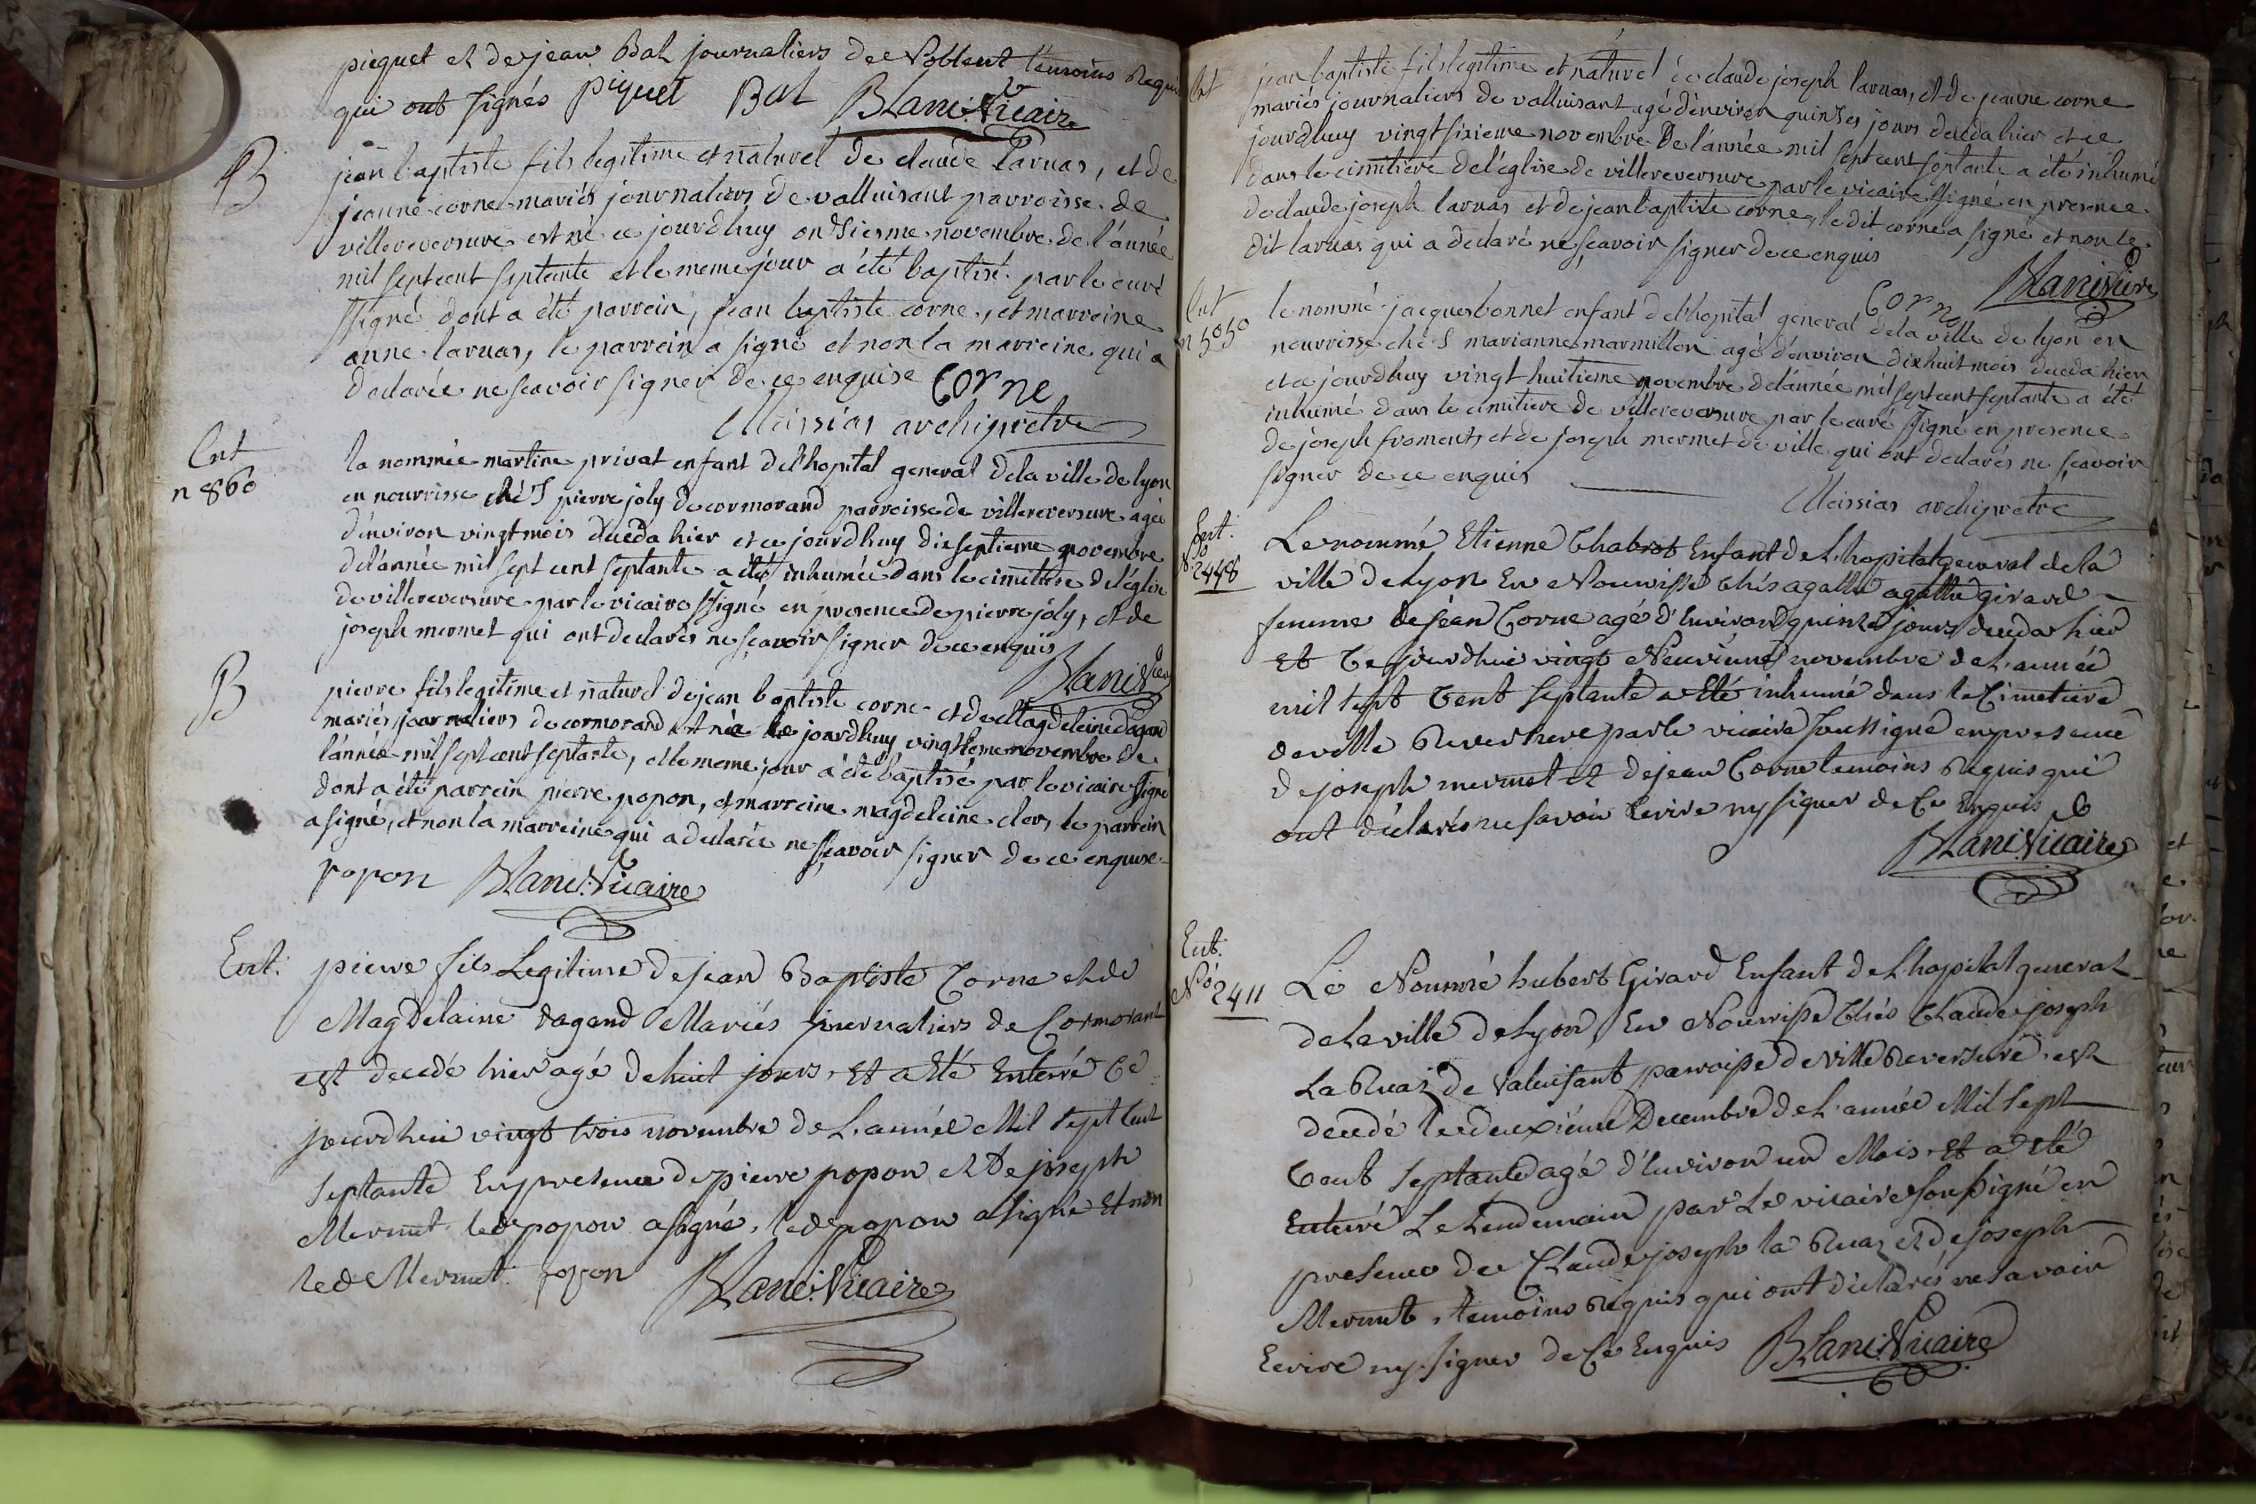 piequet et de jean Bal journaliers de Noblent temoins Requis
qui ont signés piquet Bal Blanc: Vicaire
B
jean baptiste fils legitime et naturel de claude Laruas, et de
jeanne corne mariés journaliers de valluisant parroisse de
villereversure est né ce jourdhuy onZiesme novembre de l'année
mil sept cent septante et le meme jour a été baptisé par le curé
ssigné dont a été parrein, jean baptiste corne, et marreine
anne laruas, le parrein a signé et non la marreine qui a
declarée ne scavoir signer de ce enquise Corne
Meissias archiprêtre
Ent
n 860
la nommée martine privat enfant de l'hopital general de la ville de lyon
en nourrisse chéS pierre joly de cormorand parroisse de villereversure agée
d'environ vingt mois dueda hier et ce jourdhuy dieseptieme novembre
de l'année mil sept cent septante a été inhumée dans le cimitiere de l'église
de villereversure par le vicaire ssigné en presence de pierre joly, et de
joseph mermet qui ont declarés ne sçavoir signer de ce enquis
Blanc Vicaire
B
pierre fils legitime et naturel de jean baptiste corne et de Magdeleine dagand
mariés journaliers de cormorand est née le jourdhuy vingt novembre de
l'année mil sept cent septante, et le meme jour a été baptisé par le vicaire ssigné
dont a été parrein pierre popon, et marreine magdeleine clerc, le parrein
a signé, et non la marreine qui a declarée ne sçavoir signer de ce enquise
popon Blanc: Vicaire
Ent.
pierre fils Legitime de jean Baptiste Corne et de
Magdelaine dagand Mariés journaliers de Cormorant
est decedé hier agé de huit jours. Et a Eté Enterré Ce
jourdhui vingt trois novembre de L'année Mil sept Cent
septante En presence de pierre popon et de joseph
Mermet led popon a signé, led popon a signé Et non
led Mermet. popon Blanc: Vicaire
Ent
jean baptiste fils legitime et naturel de claude joseph laruas, et de jeanne corne
mariés journaliers de valluisant agé d'environ quinSes jours dueda hier et ce
jourdhuy vingt sixieme novembre de l'année mil sept cent septante a été inhumé
dans le cimitiere de l'église de villereversure par le vicaire ssigné en presence
de claude joseph laruas et de jean baptiste corne, le dit corne a signé et non le
dit laruas qui a declaré ne sçavoir signer de ce enquis
Corne Blanc Vicaire
Ent
n 5050
le nommé jacques bonnet enfant de l'hopital general de la ville de lyon en
nourrisse chéS marianne marmillon agé d'environ dixhuit mois dueda hier
et ce jourdhuy vingt huitieme novembre de l'année mil sept cent septante a été
inhumé dans le cimitiere de villereversure par le curé ssigné en presence
de joseph froment, et de joseph mermet de ville qui ont declarés ne sçavoir
signer de ce enquis
Meissias archiprêtre
Ent.
No 2448
Le nommé Etienne Chabrot Enfant de L'hopital general de la
ville de Lyon En Nourrisse Chés agathe agathe girard
femme de jean Corne agé d'Environ quinze jours deceda hier
Et Ce jourdhui vingt Neuvieme novembre de L'année
mil sept Cent septante a Eté inhumé dans le Cimetiere
de ville Reversure par le vicaire soussigné en presence
de joseph mermet et de jean Corne temoins Requis qui
ont déclarés ne savoir Ecrire ny signer de Ce Enquis
Blanc. Vicaire
Ent.
No 2411
Le Nommé hubert Girard Enfant de L'hopital general
de La ville de Lyon, En Nourrisse Chés Claude joseph
La Ruaz de valuisant parroisse de ville Reversure est
decedé le deuxiéme Decembre de L'année Mil sept
Cent septante agé d'Environ un Mois Et a Eté
Enterré Le Lendemain par Le vicaire soussigné en
presence de Claude joseph la Ruaz et de joseph
Mermet, temoins Requis qui ont déclarés ne savoir
Ecrire ny signer de Ce Enquis Blanc: Vicaire